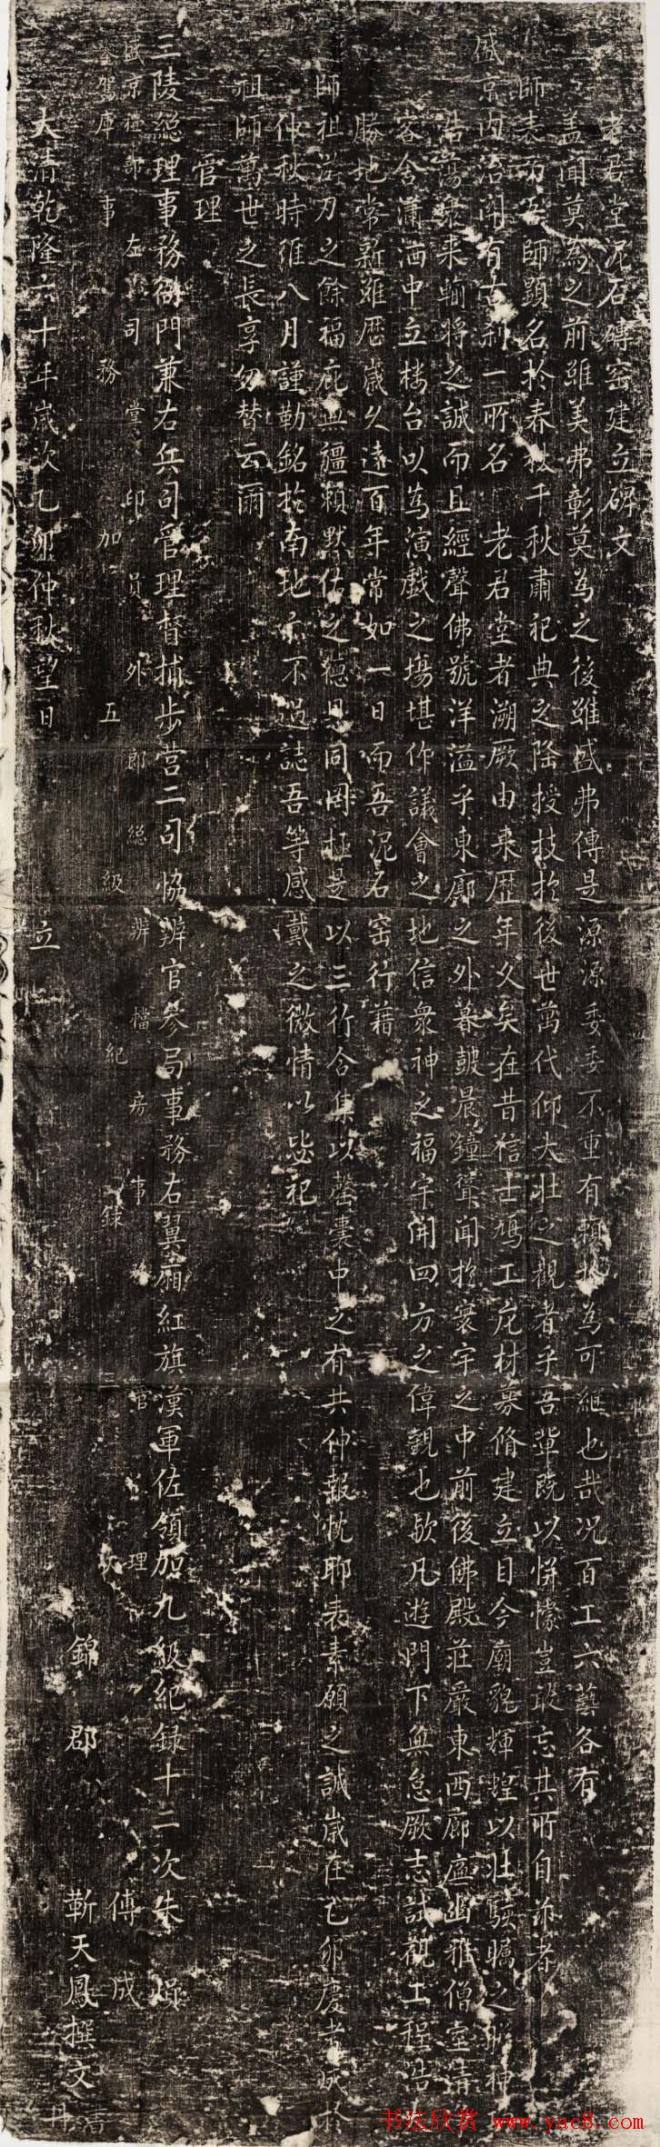 老君堂泥石磚窑建立碑文
盖聞莫為之前雖美弗彰莫為之後雖盛弗傳是源源委委不重有賴於為可継也哉况百工六藝各有
師表而名師顕名於春秋千秋肅祀典之隆授技於後世萬代仰大壯之觀者乎吾輩既以恲懞豈敢忘其所自亦者
盛京内治関有古刹一所名 老君堂者溯厥由来歴年久矣在昔信士鳩工庀材募脩建立目今廟貌輝煌以壯駿瞻之神
浩蕩衆来輸将之誠而且經聲佛號洋溢乎東廓之外暮皷晨鐘聳聞於寰宇之中前後佛殿荘厳東西廊廡幽雅僧堂
客舍潇洒中立楼台以為演戯之塲堪作議會之地信衆神之福宇開四方之偉觀也欤凡遊門下無怠厥志試觀工程浩
勝地常新雖歴歲久遠百年常如一日而吾泥石窑行藉
師祖之餘福庇無疆賴默佑之德是同罔極是以三行合集以罄囊中之有共伸報忱耶表素願之誠歲在乙卯慶
仲秋時維八月謹勒銘於南地亦不過誌吾等感戴之微情以毖祀
祖師萬世之長享勿替云爾
管理
三陵総理事務衙門兼右兵司管理督捕步营二司協辦官參局事務右翼廂紅旗漢軍佐領加九級紀録十二次朱
盛京 部左司掌印員外郎総辦檔房事 官 理 傅成
庫事務加五級紀錄三次 錦郡 靳天鳳撰文 丹
大清乾隆六十年歲次乙卯仲秋望日 立
书法欣赏 www.yac8.com